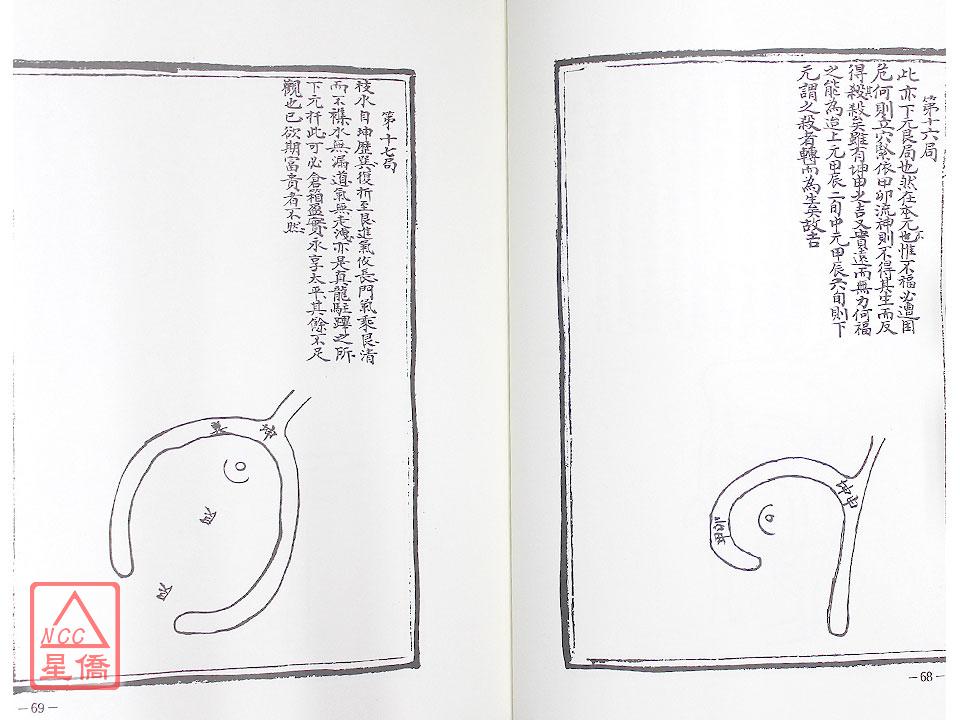 第十六局
此亦下元艮局也然在本元也不惟不福必遭困
危何則立穴緊依甲卯流神則不得其生而反
得殺殺矣雖有坤申之吉又實遠而無力何福
之能為迨上元甲辰二旬中元甲辰六旬則下
元謂之殺者轉而為生矣故吉
坤申
—68—
第十七局
枝水自坤歷巽復折至艮進氣依長門氣乘艮清
而不襍水無漏道氣無走洩亦是真龍駐蹕之所
下元扦此可必倉箱盈實永享太平其餘不足
觀也已欲期富貴者不然
坤
巽
艮
艮
—69—
NCC
星僑